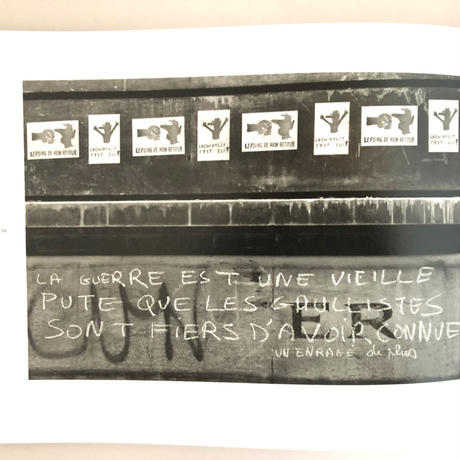 LE POING DE NON RETOUR
LA CHIENLIT
C'EST LUI!
LE POING DE NON RETOUR
LA CHIENLIT
C'EST LUI!
LE POING DE NON RETOUR
LA CHIENLIT
C'EST LUI!
LE POING DE NON RETOUR
LA CHIENLIT
C'EST LUI!
LA GUERRE EST UNE VIEILLE
PUTE QUE LES GAULLISTES
SONT FIERS D'AVOIR CONNUE
UN ENRAGÉ de plus
ER